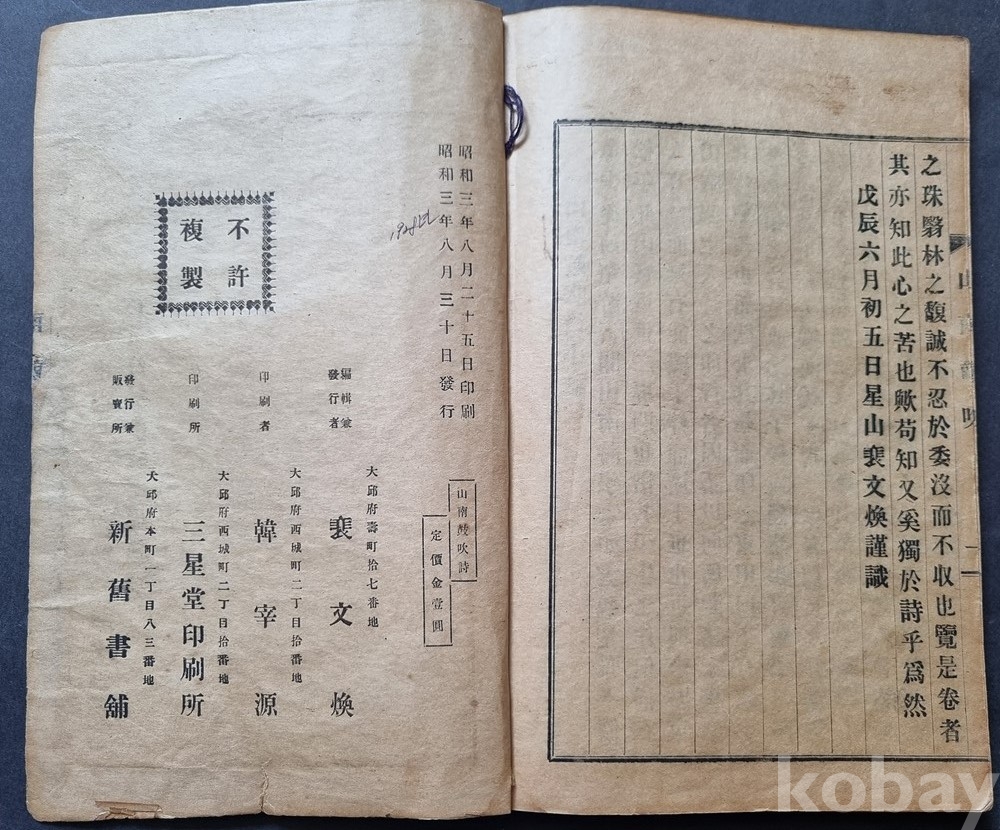 之珠翳林之馥誠不忍於委沒而不收也覽是卷者
其亦知此心之苦也歟苟知又奚獨於詩乎爲然
戊辰六月初五日星山裵文煥謹識
昭和三年八月二十五日印刷
昭和三年八月三十日發行
山南皷吹詩
定價金壹圓
大邱府壽町拾七番地
編輯兼
發行者
裵文煥
大邱府西城町二丁目拾番地
印刷者
韓宰源
大邱府西城町二丁目拾番地
印刷所
三星堂印刷所
大邱府本町一丁目八三番地
發行兼
販賣所
新舊書舖
不許
複製
kobay